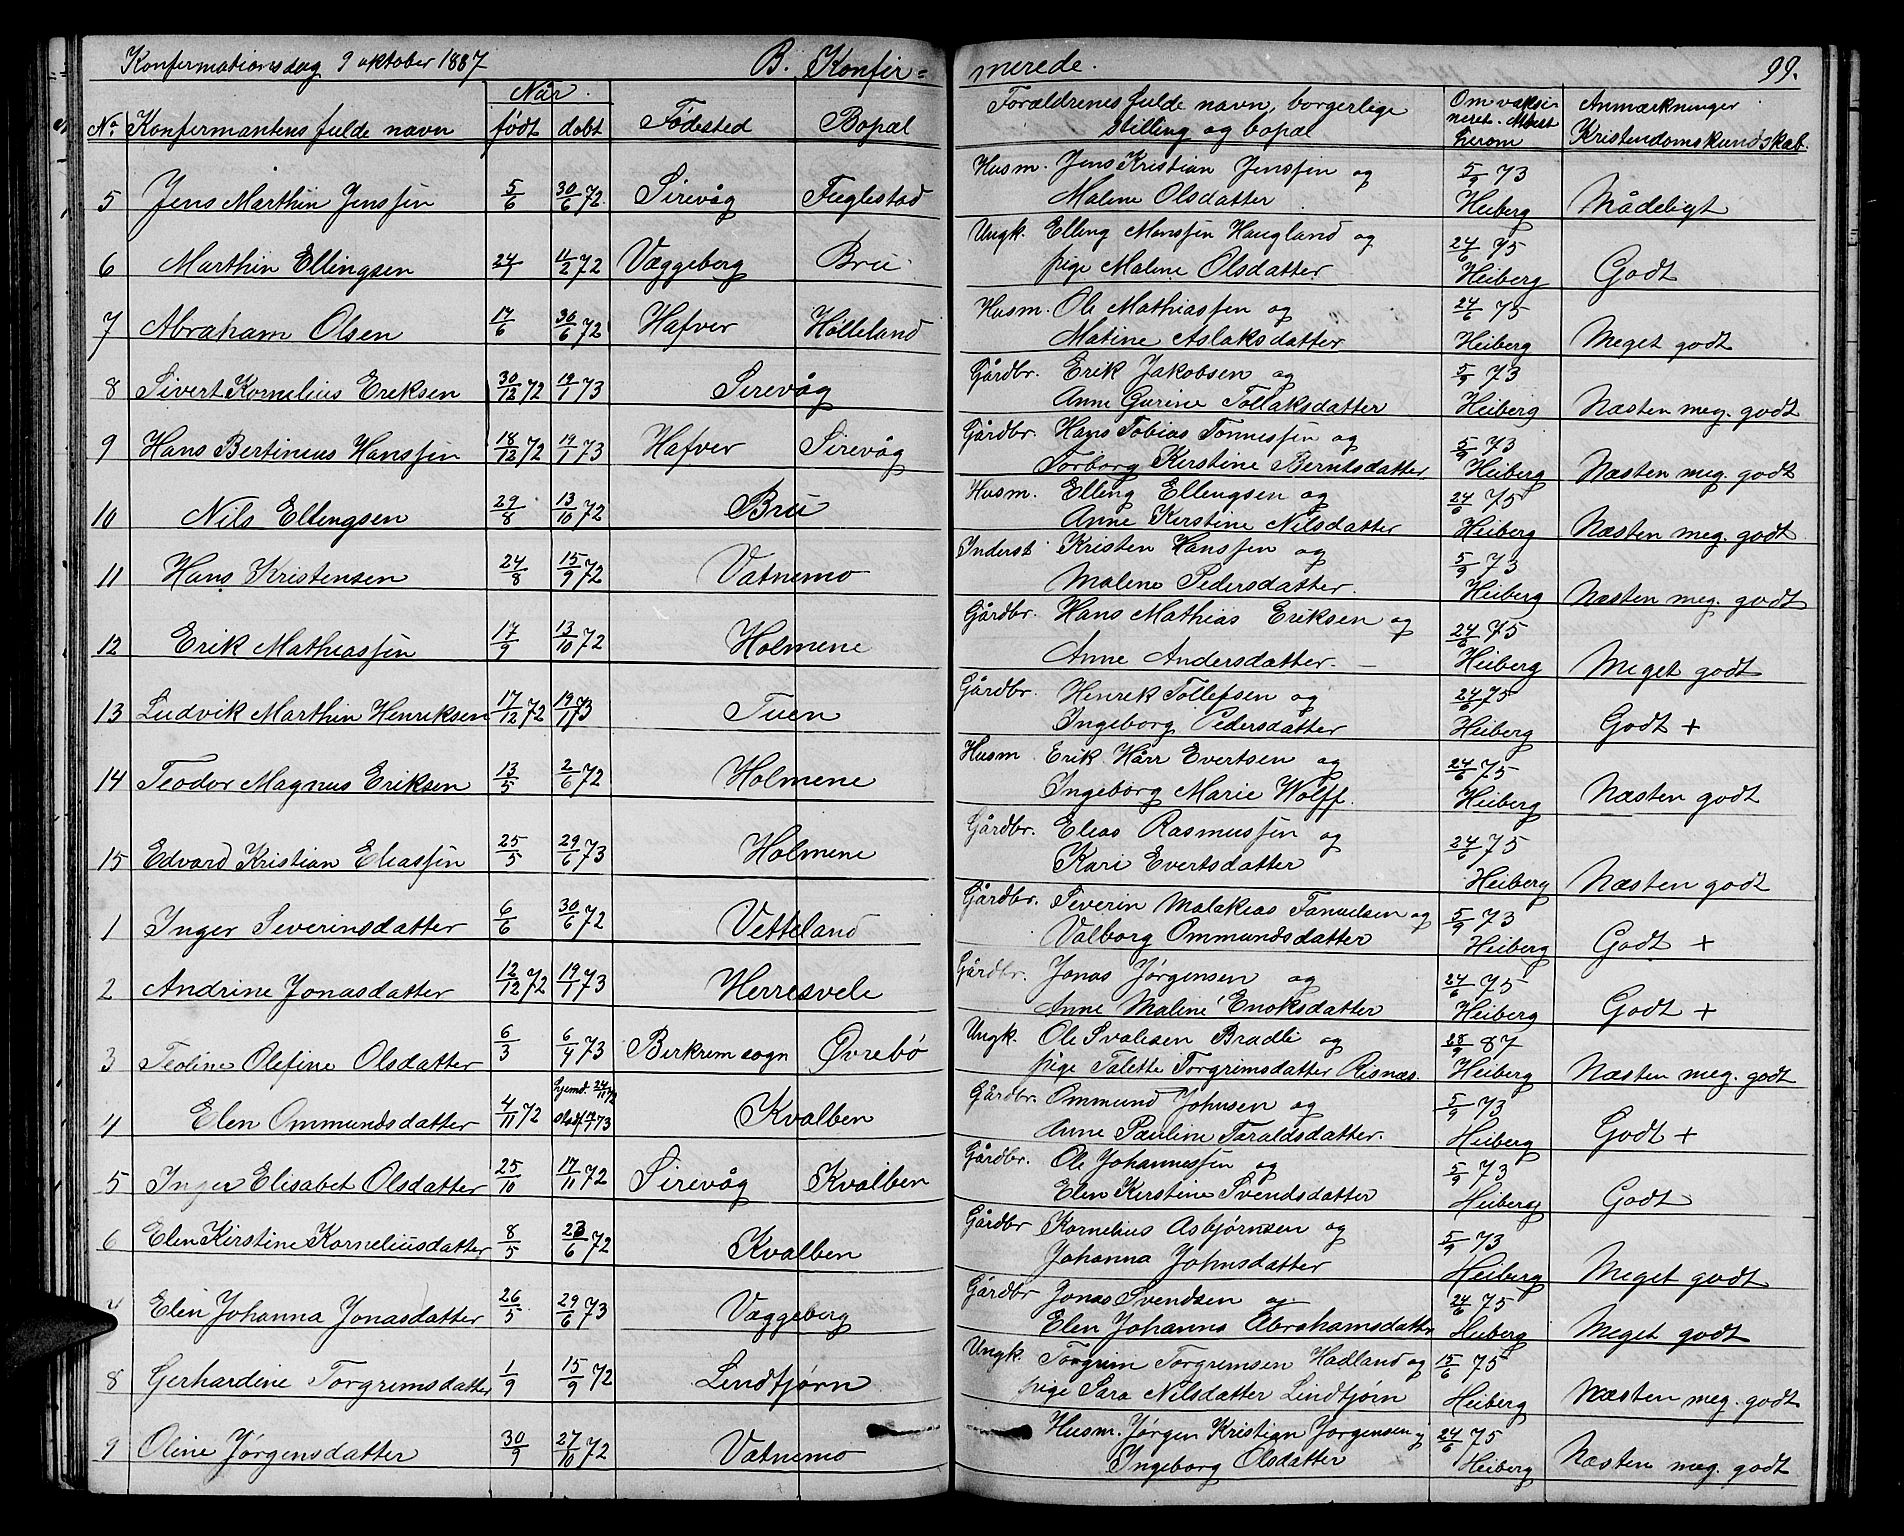 Konfermationsdag 9 oktober 1887 B. Konfir= merede. 99.
No Konfermantens fulde navn Når født døbt Fødested Bopæl Forældrenes fulde navn, borgerlige stilling og bopæl Om vaksineret. Attest herom Anmærkninger Kristendomskundskab.
5 Jens Marthin Jenssen 5/6 30/6 72 Sirevåg Fuglestad Husm. Jens Kristian Jenssen og 5/9 73
Malene Olsdatter Heiberg Mådeligt
6 Marthin Ellingsen 24/1 11/2 72 Væggeberg Bru Ungk. Elling Monssen Haugland og 24/6 75
pige Malene Olsdatter Heiberg Godt
7 Abraham Olsen 17/6 30/6 72 Hafver Hølleland Husm. Ole Mathiassen og 24/6 75
Matine Aslaksdatter Heiberg Meget godt
8 Sivert Kornelius Eriksen 30/12 72 19/1 73 Sirevåg Gårdbr. Erik Jakobsen og 5/9 73
Anne Gurine Tollaksdatter Heiberg Næsten meg. godt
9 Hans Bertinius Hanssen 18/12 72 19/1 73 Hafver Sirevåg Gårdbr. Hans Tobias Tønnessen og 5/9 73
Torborg Kerstine Berntsdatter Heiberg Næsten meg. godt
10 Nils Ellingsen 29/8 13/10 72 Bru Husm. Elling Ellingsen og 24/6 75
Anne Kerstine Nilsdatter Heiberg Næsten meg. godt
11 Hans Kristensen 24/8 15/9 72 Vatnemo Inderst Kristen Hanssen og 5/9 73
Malene Pedersdatter. Heiberg Næsten meg. godt
12 Erik Mathiassen 17/9 13/10 72 Holmene Gårdbr. Hans Mathias Eriksen og 24/6 75
Anne Andersdatter. Heiberg Meget godt
13 Ludvik Marthin Henriksen 17/12 72 19/1 73 Tuen Gårdbr. Henrik Tollefsen og 24/6 75
Ingeborg Pedersdatter Heiberg Godt +
14 Teodor Magnus Eriksen 13/5 2/6 72 Holmene Husm Erik Hårr Evertsen og 24/6 75
Ingeborg Marie Wolff. Heiberg Næsten godt
15 Edvard Kristian Eliassen 25/5 29/6 73 Holmene Gårdbr. Elias Rasmussen og 24/6 75
Kari Evertsdatter Heiberg Næsten godt
1 Inger Severinsdatter 6/6 30/6 72 Vetteland Gårdbr. Severin Malakias Tanuelsen og 5/9 73
Valborg Ommundsdatter Heiberg Godt +
2 Andrine Jonasdatter 12/12 72 19/1 73 Herresvele Gårdbr. Jonas Jørgensen og 24/6 75
Anne Maline Enoksdatter Heiberg Godt +
3 Teoline Olefine Olsdatter 6/3 6/4 73 Birkrem sogn Øvrebø Ungk. Ole Svalesen Bradli og 28/9 87
pige Talette Torgrimsdatter Risnæs. Heiberg Næsten meg. godt
4 Elen Ommundsdatter 4/11 72 hjemd. 24/11 72 Kvalben Gårdbr. Ommund Johnsen og 5/9 73
Anne Pauline Taraldsdatter. Heiberg Godt +
5 Inger Elisabet Olsdatter 25/10 17/11 72 Sirevåg Kvalben Gårdbr. Ole Johannessen og 5/9 73
Elen Kerstine Svendsdatter Heiberg Godt
6 Elen Kirstine Korneliusdatter 8/5 23/6 72 Kvalben Gårdbr Kornelius Asbjørnsen og 5/9 73
Johanna Johnsdatter Heiberg Meget godt
7 Elen Johanna Jonasdatter 26/5 29/6 73 Væggeberg Gårdbr Jonas Svendsen og 24/6 75
Elen Johanna Abrahamsdatter Heiberg Meget godt
8 Gerhardine Torgrimsdatter 1/9 15/9 72 Lindtjørn Ungk. Torgrim Torgrimsen Hadland og 15/6 75
pige Sara Nilsdatter Lindtjørn Heiberg Næsten meg. godt
9 Oline Jørgensdatter 30/9 27/10 72 Vatnemo Husm. Jørgen Kristian Jørgensen og 24/6 75
Ingeborg Olsdatter Heiberg Næsten meg. godt